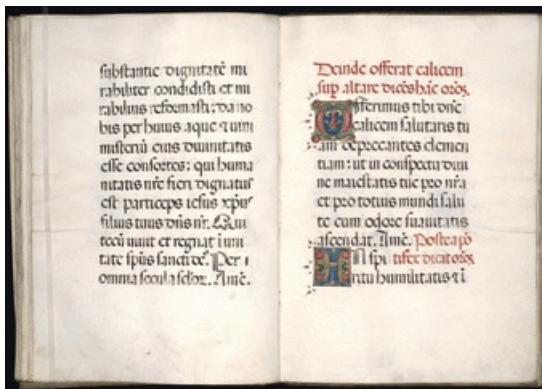 substantie dignitatē mi
rabiliter condidisti et mi
rabilius reformasti: da no
bis per huius aque et uini
misteriū eius diuinitatis
esse consortes: qui huma
nitatis nr̄e fieri dignatus
est particeps iesus xp̄us
filius tuus dn̄s nr̄. Qui
tecū uiuit et regnat ī uni
tate sp̄us sancti de᷒. Per
omnia secula sc̄lor. Amē.
Deinde offerat calicem
sup altare dicēs hāc orōꝫ.
Offerimus tibi dn̄e
calicem salutaris tu
am deprecantes clemen
tiam: ut in conspectu diui
ne maiestatis tue pro nr̄a
et pro totius mundi salu
te cum odore suauitatis
ascendat. Amē. Postea pō
tifex dicit orōꝫ
In spi
ritu humilitatis et ī